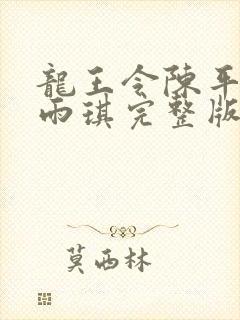 龍王令陳平
雨琪完整版
莫西林